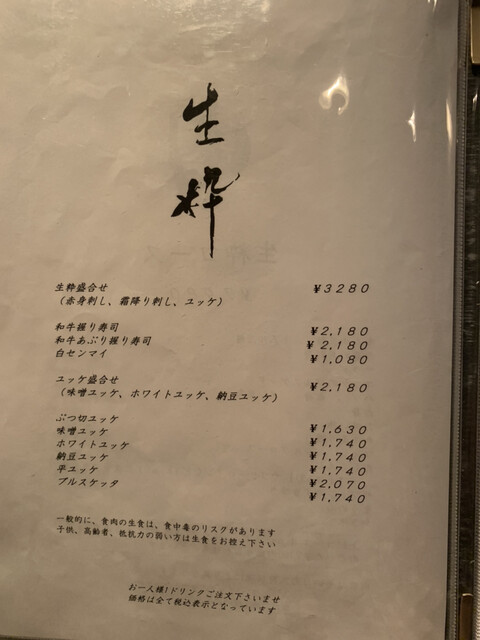 生
粋
生粋盛合せ ¥3280
(赤身刺し、霜降り刺し、ユッケ)
和牛握り寿司 ¥2,180
和牛あぶり握り寿司 ¥2,180
白センマイ ¥1,080
ユッケ盛合せ ¥2,180
(味噌ユッケ、ホワイトユッケ、納豆ユッケ)
ぶつ切ユッケ ¥1,630
味噌ユッケ ¥1,740
ホワイトユッケ ¥1,740
納豆ユッケ ¥1,740
平ユッケ ¥2,070
ブルスケッタ ¥1,740
一般的に、食肉の生食は、食中毒のリスクがあります
子供、高齢者、抵抗力の弱い方は生食をお控え下さい
お一人様1ドリンクご注文下さいませ
価格は全て税込表示となっています